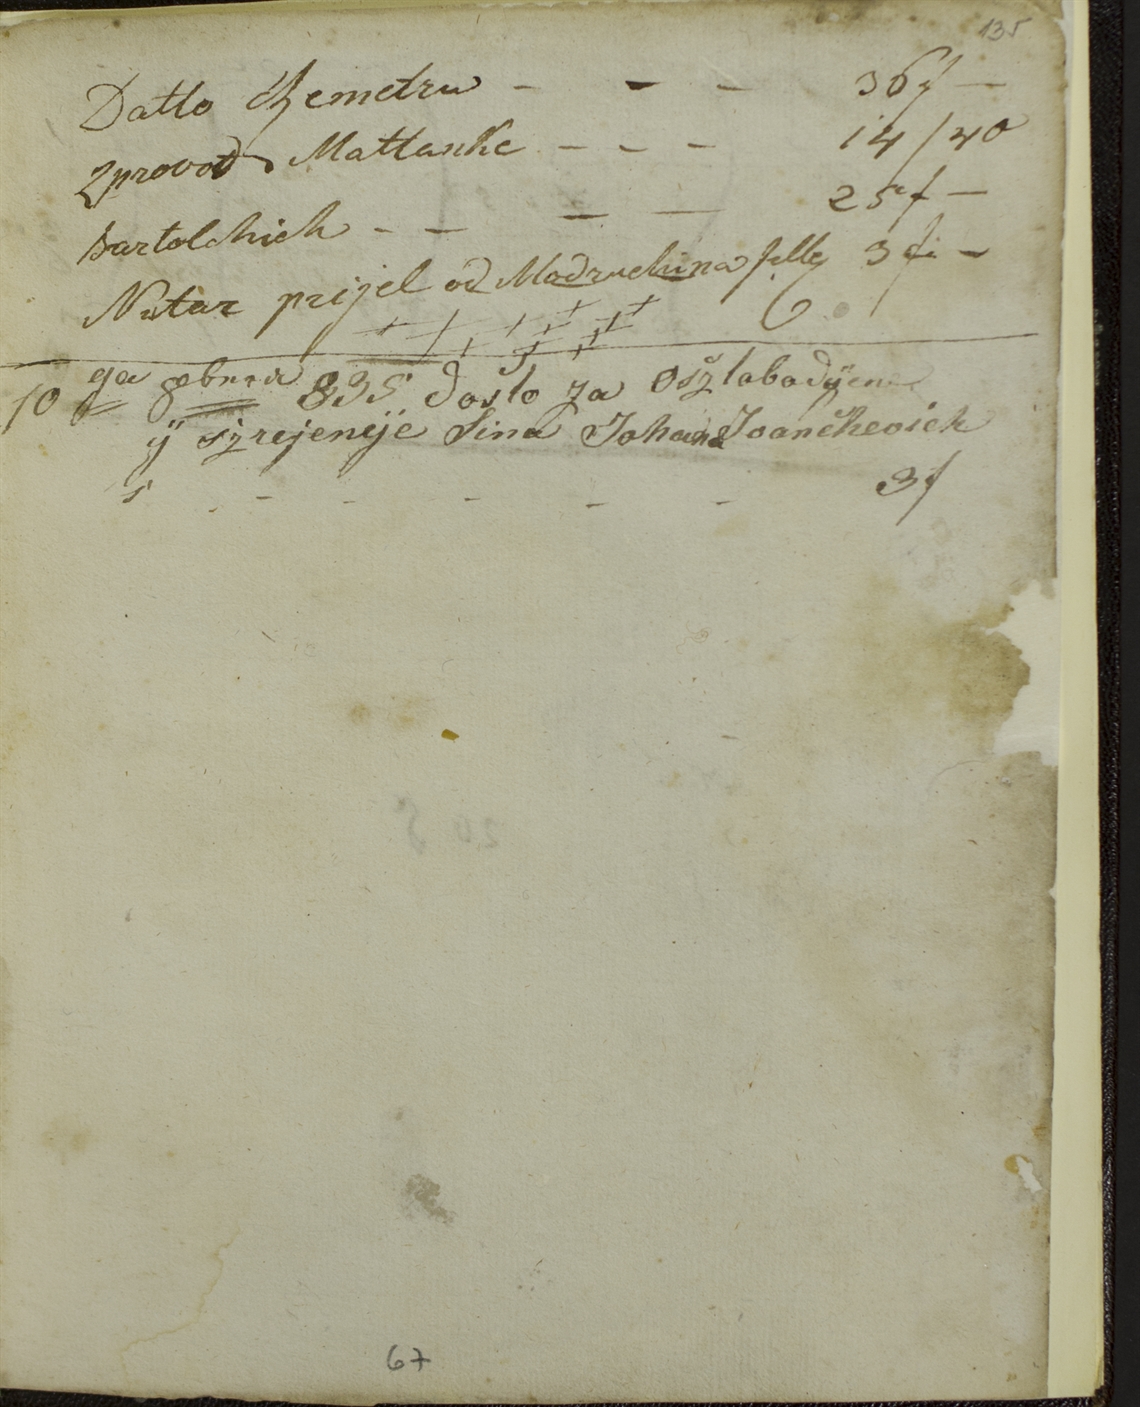 135
Datto Czemetru - - - 36 f -
Zprovod Mattanke - - - 14/40
Bartolchich - - - - 25 f -
Notar prijel od Madruchina 3 f -
10 ga 8bra 835 doslo za oszlobodjene
ÿ szrejenije Sina Johana Joanchevich
s - - - - - 3 f
67